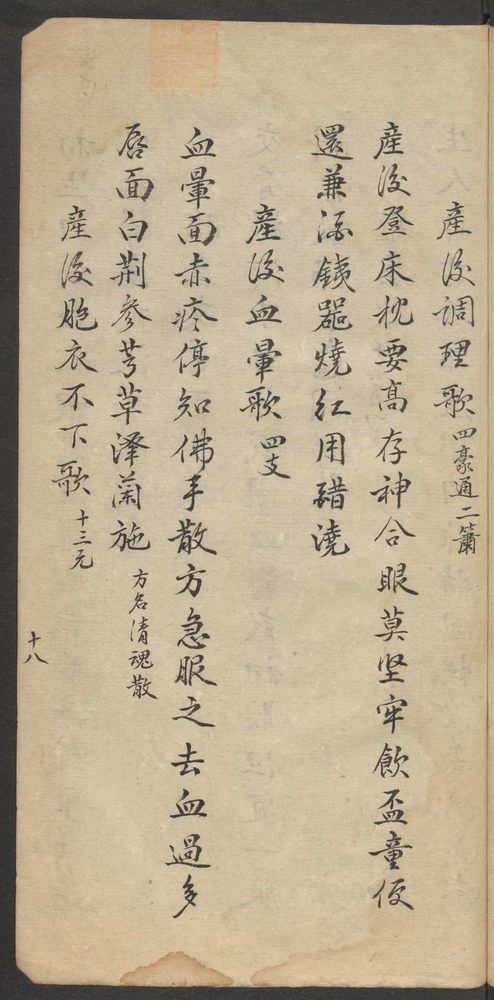 產後調理歌 四豪通二蕭
產後登床枕要高存神合眼莫坚牢飲盃童便
還兼酒鐵器燒紅用醋澆
產後血暈歌 四支
血暈面赤疼停知佛手散方急服之去血過多
唇面白荆參芎草澤蘭施 方名清魂散
產後胞衣不下歌 十三元
十八